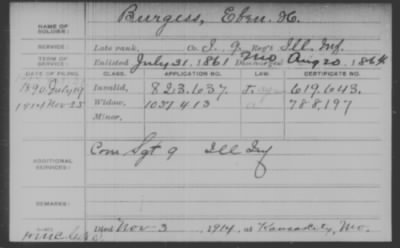 NAME OF SOLDIER: Burgess, Eben H.
SERVICE: Late rank, Co. I, 9 Reg't Ill. Inf.
TERM OF SERVICE: Enlisted July 31, 1861 Discharged Aug 20, 1864
DATE OF FILING. CLASS. APPLICATION NO. LAW. CERTIFICATE NO.
1890 July 19 Invalid, 823.637 619.643
1914 Nov 25 Widow, 1037413 788,197
Minor,
ADDITIONAL SERVICES: Com Sgt 9 Ill Inf
REMARKS:
Died Nov 3, 1914, at Kansas City, Mo.